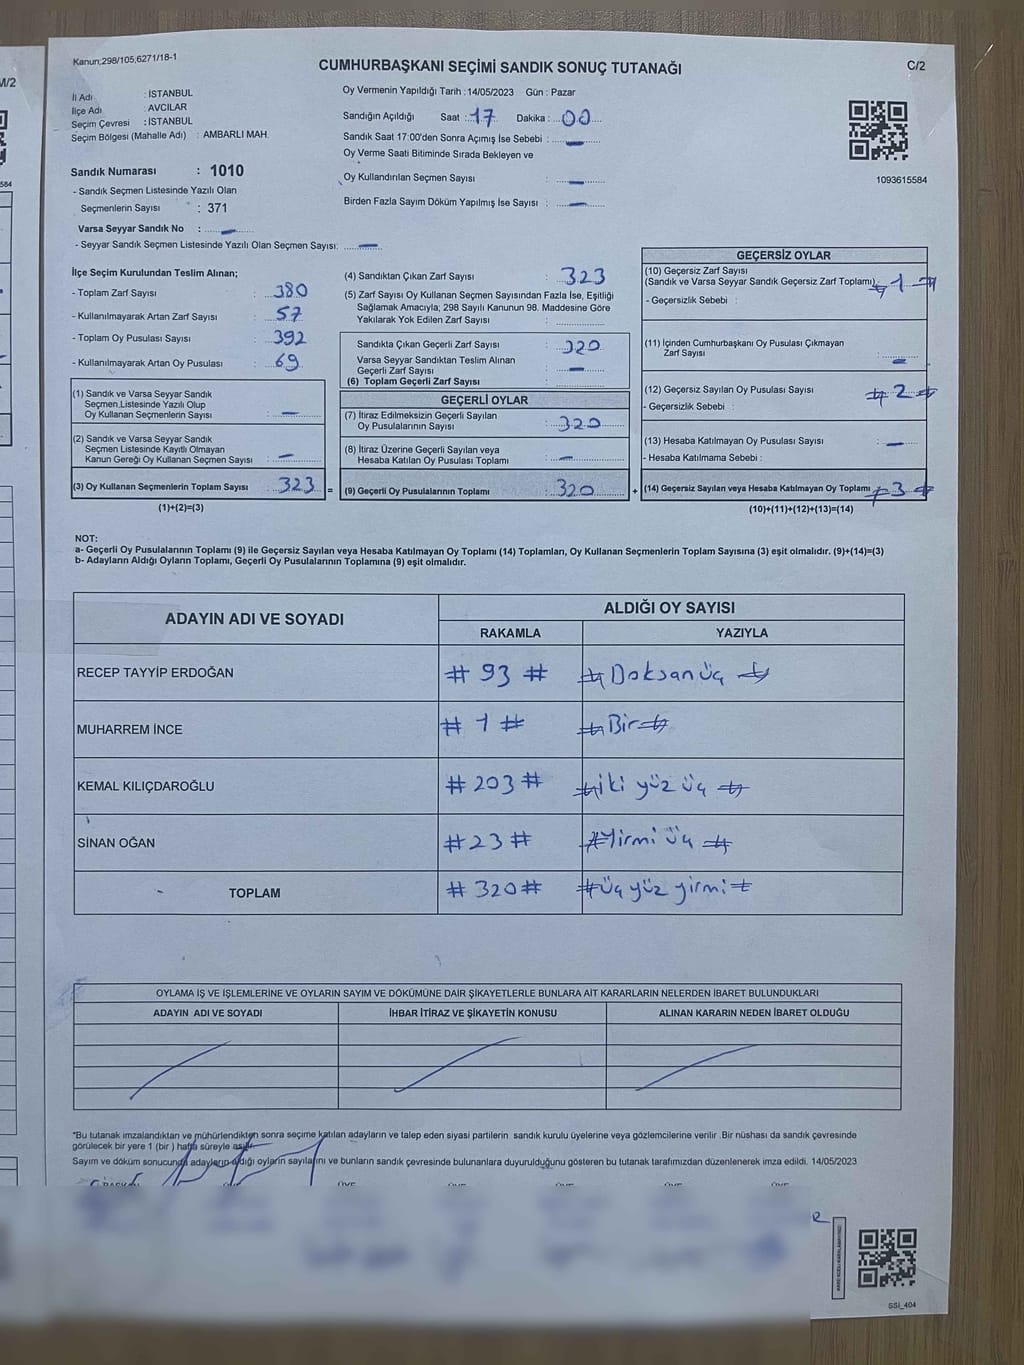 M/2
584
Kanun;298/105;6271/18-1
CUMHURBAŞKANI SEÇİMİ SANDIK SONUÇ TUTANAĞI
C/2
İl Adı : İSTANBUL
İlçe Adı : AVCILAR
Seçim Çevresi : İSTANBUL
Seçim Bölgesi (Mahalle Adı) : AMBARLI MAH.
Oy Vermenin Yapıldığı Tarih : 14/05/2023 Gün : Pazar
Sandığın Açıldığı Saat : 17 Dakika : 00
Sandık Saat 17:00'den Sonra Açımış İse Sebebi : —
Oy Verme Saati Bitiminde Sırada Bekleyen ve
Oy Kullandırılan Seçmen Sayısı : —
Birden Fazla Sayım Döküm Yapılmış İse Sayısı : —
1093615584
Sandık Numarası : 1010
- Sandık Seçmen Listesinde Yazılı Olan
Seçmenlerin Sayısı : 371
Varsa Seyyar Sandık No : —
- Seyyar Sandık Seçmen Listesinde Yazılı Olan Seçmen Sayısı: —
İlçe Seçim Kurulundan Teslim Alınan;
- Toplam Zarf Sayısı : 380
- Kullanılmayarak Artan Zarf Sayısı : 57
- Toplam Oy Pusulası Sayısı : 392
- Kullanılmayarak Artan Oy Pusulası : 69
(1) Sandık ve Varsa Seyyar Sandık
Seçmen Listesinde Yazılı Olup
Oy Kullanan Seçmenlerin Sayısı : —
(2) Sandık ve Varsa Seyyar Sandık
Seçmen Listesinde Kayıtlı Olmayan
Kanun Gereği Oy Kullanan Seçmen Sayısı : —
(3) Oy Kullanan Seçmenlerin Toplam Sayısı : 323 =
(1)+(2)=(3)
(4) Sandıktan Çıkan Zarf Sayısı : 323
(5) Zarf Sayısı Oy Kullanan Seçmen Sayısından Fazla İse, Eşitliği
Sağlamak Amacıyla, 298 Sayılı Kanunun 98. Maddesine Göre
Yakılarak Yok Edilen Zarf Sayısı :
Sandıkta Çıkan Geçerli Zarf Sayısı : 320
Varsa Seyyar Sandıktan Teslim Alınan
Geçerli Zarf Sayısı : —
(6) Toplam Geçerli Zarf Sayısı :
GEÇERLİ OYLAR
(7) İtiraz Edilmeksizin Geçerli Sayılan
Oy Pusulalarının Sayısı : 320
(8) İtiraz Üzerine Geçerli Sayılan veya
Hesaba Katılan Oy Pusulası Toplamı : —
(9) Geçerli Oy Pusulalarının Toplamı : 320 +
GEÇERSİZ OYLAR
(10) Geçersiz Zarf Sayısı
(Sandık ve Varsa Seyyar Sandık Geçersiz Zarf Toplamı) # 1 #
- Geçersizlik Sebebi :
(11) İçinden Cumhurbaşkanı Oy Pusulası Çıkmayan
Zarf Sayısı : —
(12) Geçersiz Sayılan Oy Pusulası Sayısı # 2 #
- Geçersizlik Sebebi :
(13) Hesaba Katılmayan Oy Pusulası Sayısı : —
- Hesaba Katılmama Sebebi :
(14) Geçersiz Sayılan veya Hesaba Katılmayan Oy Toplamı # 3 #
(10)+(11)+(12)+(13)=(14)
NOT:
a- Geçerli Oy Pusulalarının Toplamı (9) ile Geçersiz Sayılan veya Hesaba Katılmayan Oy Toplamı (14) Toplamları, Oy Kullanan Seçmenlerin Toplam Sayısına (3) eşit olmalıdır. (9)+(14)=(3)
b- Adayların Aldığı Oyların Toplamı, Geçerli Oy Pusulalarının Toplamına (9) eşit olmalıdır.
ADAYIN ADI VE SOYADI ALDIĞI OY SAYISI
RAKAMLA YAZIYLA
RECEP TAYYİP ERDOĞAN # 93 # # Doksanüç #
MUHARREM İNCE # 1 # # Bir #
KEMAL KILIÇDAROĞLU # 203 # # iki yüz üç #
SİNAN OĞAN # 23 # # Yirmi üç #
TOPLAM # 320 # # üç yüz yirmi #
OYLAMA İŞ VE İŞLEMLERİNE VE OYLARIN SAYIM VE DÖKÜMÜNE DAİR ŞİKAYETLERLE BUNLARA AİT KARARLARIN NELERDEN İBARET BULUNDUKLARI
ADAYIN ADI VE SOYADI İHBAR İTİRAZ VE ŞİKAYETİN KONUSU ALINAN KARARIN NEDEN İBARET OLDUĞU
*Bu tutanak imzalandıktan ve mühürlendikten sonra seçime katılan adayların ve talep eden siyasi partilerin sandık kurulu üyelerine veya gözlemcilerine verilir .Bir nüshası da sandık çevresinde
görülecek bir yere 1 (bir ) hafta süreyle asılır.
Sayım ve döküm sonucunda adayların aldığı oyların sayılarını ve bunların sandık çevresinde bulunanlara duyurulduğunu gösteren bu tutanak tarafımızdan düzenlenerek imza edildi. 14/05/2023
SSİ_404